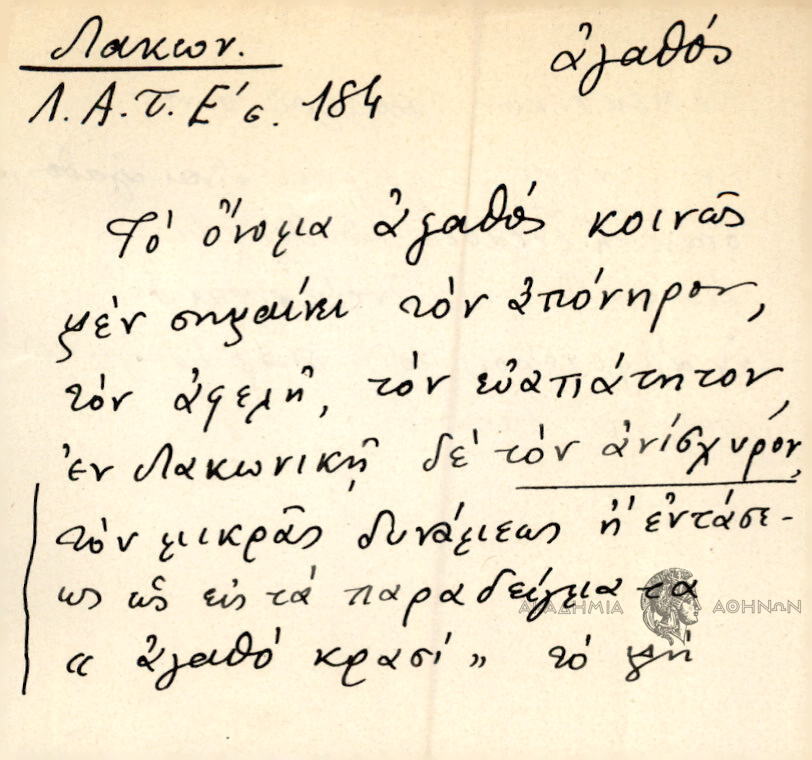 Λακων.
ἀγαθός
Λ.Α.Τ. Ε´ σ. 184
Τὸ ὄνομα ἀγαθὸς κοινῶς
μὲν σημαίνει τὸν ἀπόνηρον,
τὸν ἀφελῆ, τὸν εὐαπάτητον,
ἐν Λακωνικῇ δὲ τὸν ἀνίσχυρόν,
τὸν μικρᾶς δυνάμεως ἢ ἐντάσε-
ως ὡς εἰς τὰ παραδείγματα
« ἀγαθὸ κρασί » τὸ μή
ΑΚΑΔΗΜΙΑ ΑΘΗΝΩΝ